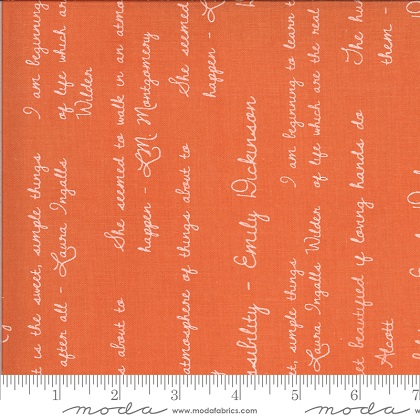 t is the sweet, simple things I am beginning
after all - Laura Ingalls of life which are
Wilder
s about to She seemed to walk in an atmo
happen - L.M. Montgomery
atmosphere of things about to She seemed
happen - L
sibility - Emily Dickinson
et, simple things I am beginning to learn t
Laura Ingalls Wilder of life which are the real
et beautified if loving hands do The hu
Alcott them -
1 2 3 4 5 6 7
moda www.modafabrics.com moda